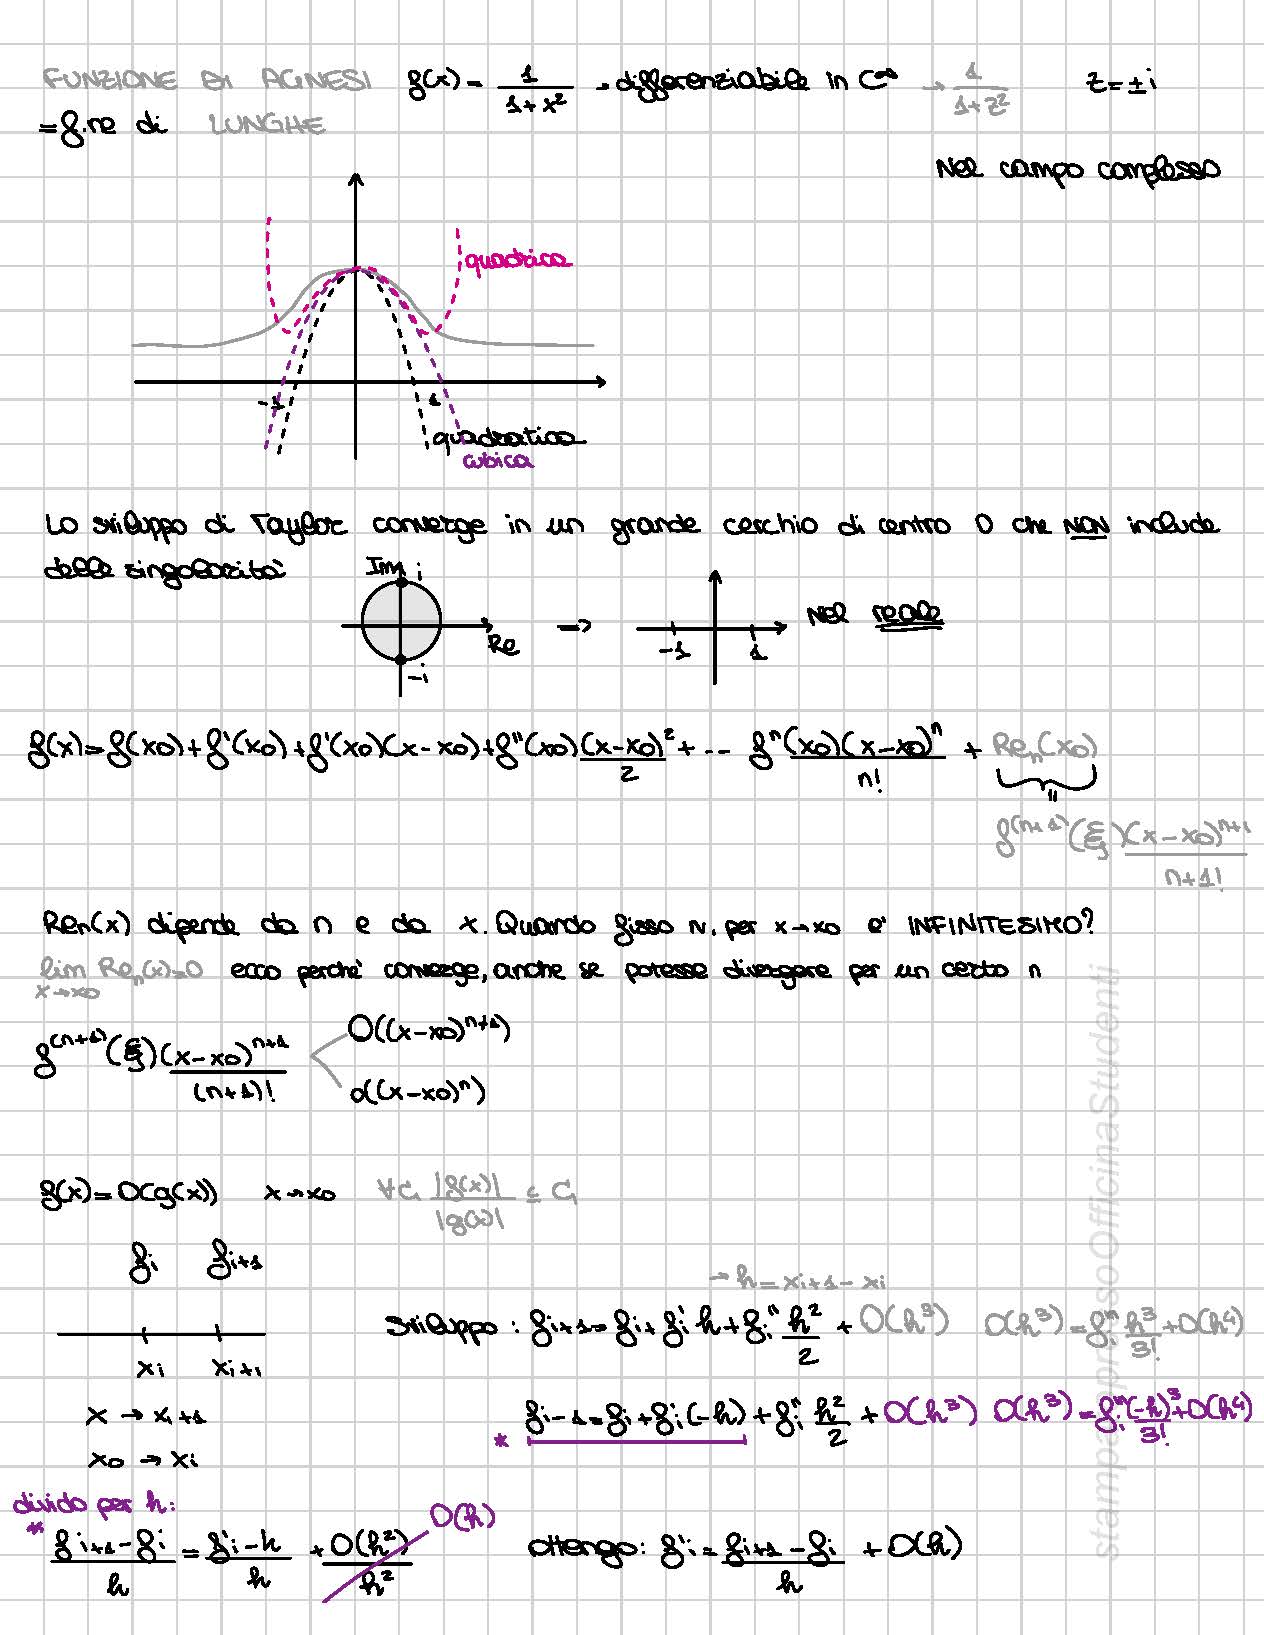 FUNZIONE DI AGNESI f(x) = 1/(1+x²) → differenziabile in C^∞ → 1/(1+z²) z = ±i
= f.ne di LUNGHE
Nel campo complesso
quadrica
-1 1
quadratica
cubica
Lo sviluppo di Taylor converge in un grande cerchio di centro 0 che NON include
delle singolarità
Im i
Re ⇒ -1 1 Nel reale
-i
f(x) = f(x0) + f'(x0) + f'(x0)(x-x0) + f''(x0)(x-x0)²/2 + -- fⁿ(x0)(x-x0)ⁿ/n! + Reₙ(x0)
=
f^(n+1)(ξ)(x-x0)^(n+1)/n+1!
Reₙ(x) dipende da n e da x. Quando fisso n, per x→x0 è INFINITESIMO?
lim x→x0 Reₙ(x)=0 ecco perché converge, anche se potesse divergere per un certo n
f^(n+1)(ξ)(x-x0)^(n+1)/(n+1)!
O((x-x0)^(n+1))
o((x-x0)ⁿ)
f(x) = O(g(x)) x→x0 ∀C₁ |f(x)|/|g(x)| ≤ C₁
fi fi+1
→ h = xi+1 - xi
Sviluppo: fi+1 = fi + fi' h + fi'' h²/2 + O(h³) O(h³) = fi''' h³/3! + O(h⁴)
xi xi+1
x → xi+1
* fi-1 = fi + fi'(-h) + fi'' h²/2 + O(h³) O(h³) = fi''' (-h)³/3! + O(h⁴)
x0 → xi
divido per h:
* (fi+1 - fi)/h = (fi' - h)/h + O(h²)/h² O(h) ottengo: f'i = (fi+1 - fi)/h + O(h)
stampa presso OfficinaStudenti